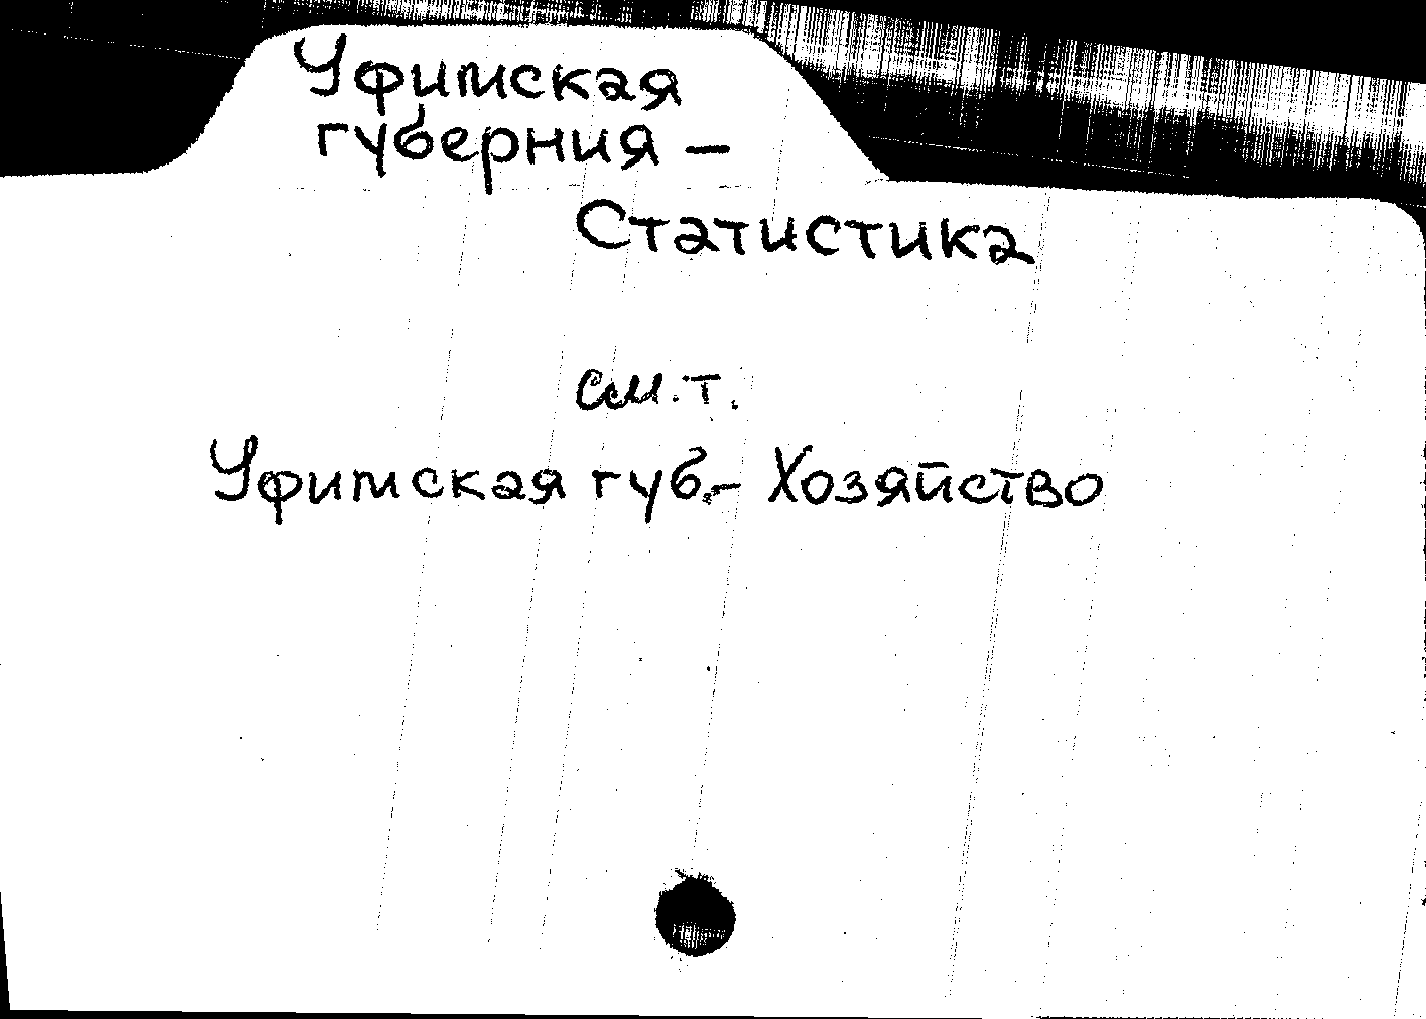 Уфимская
губерния –
Статистика
см. т.
Уфимская губ.– Хозяйство